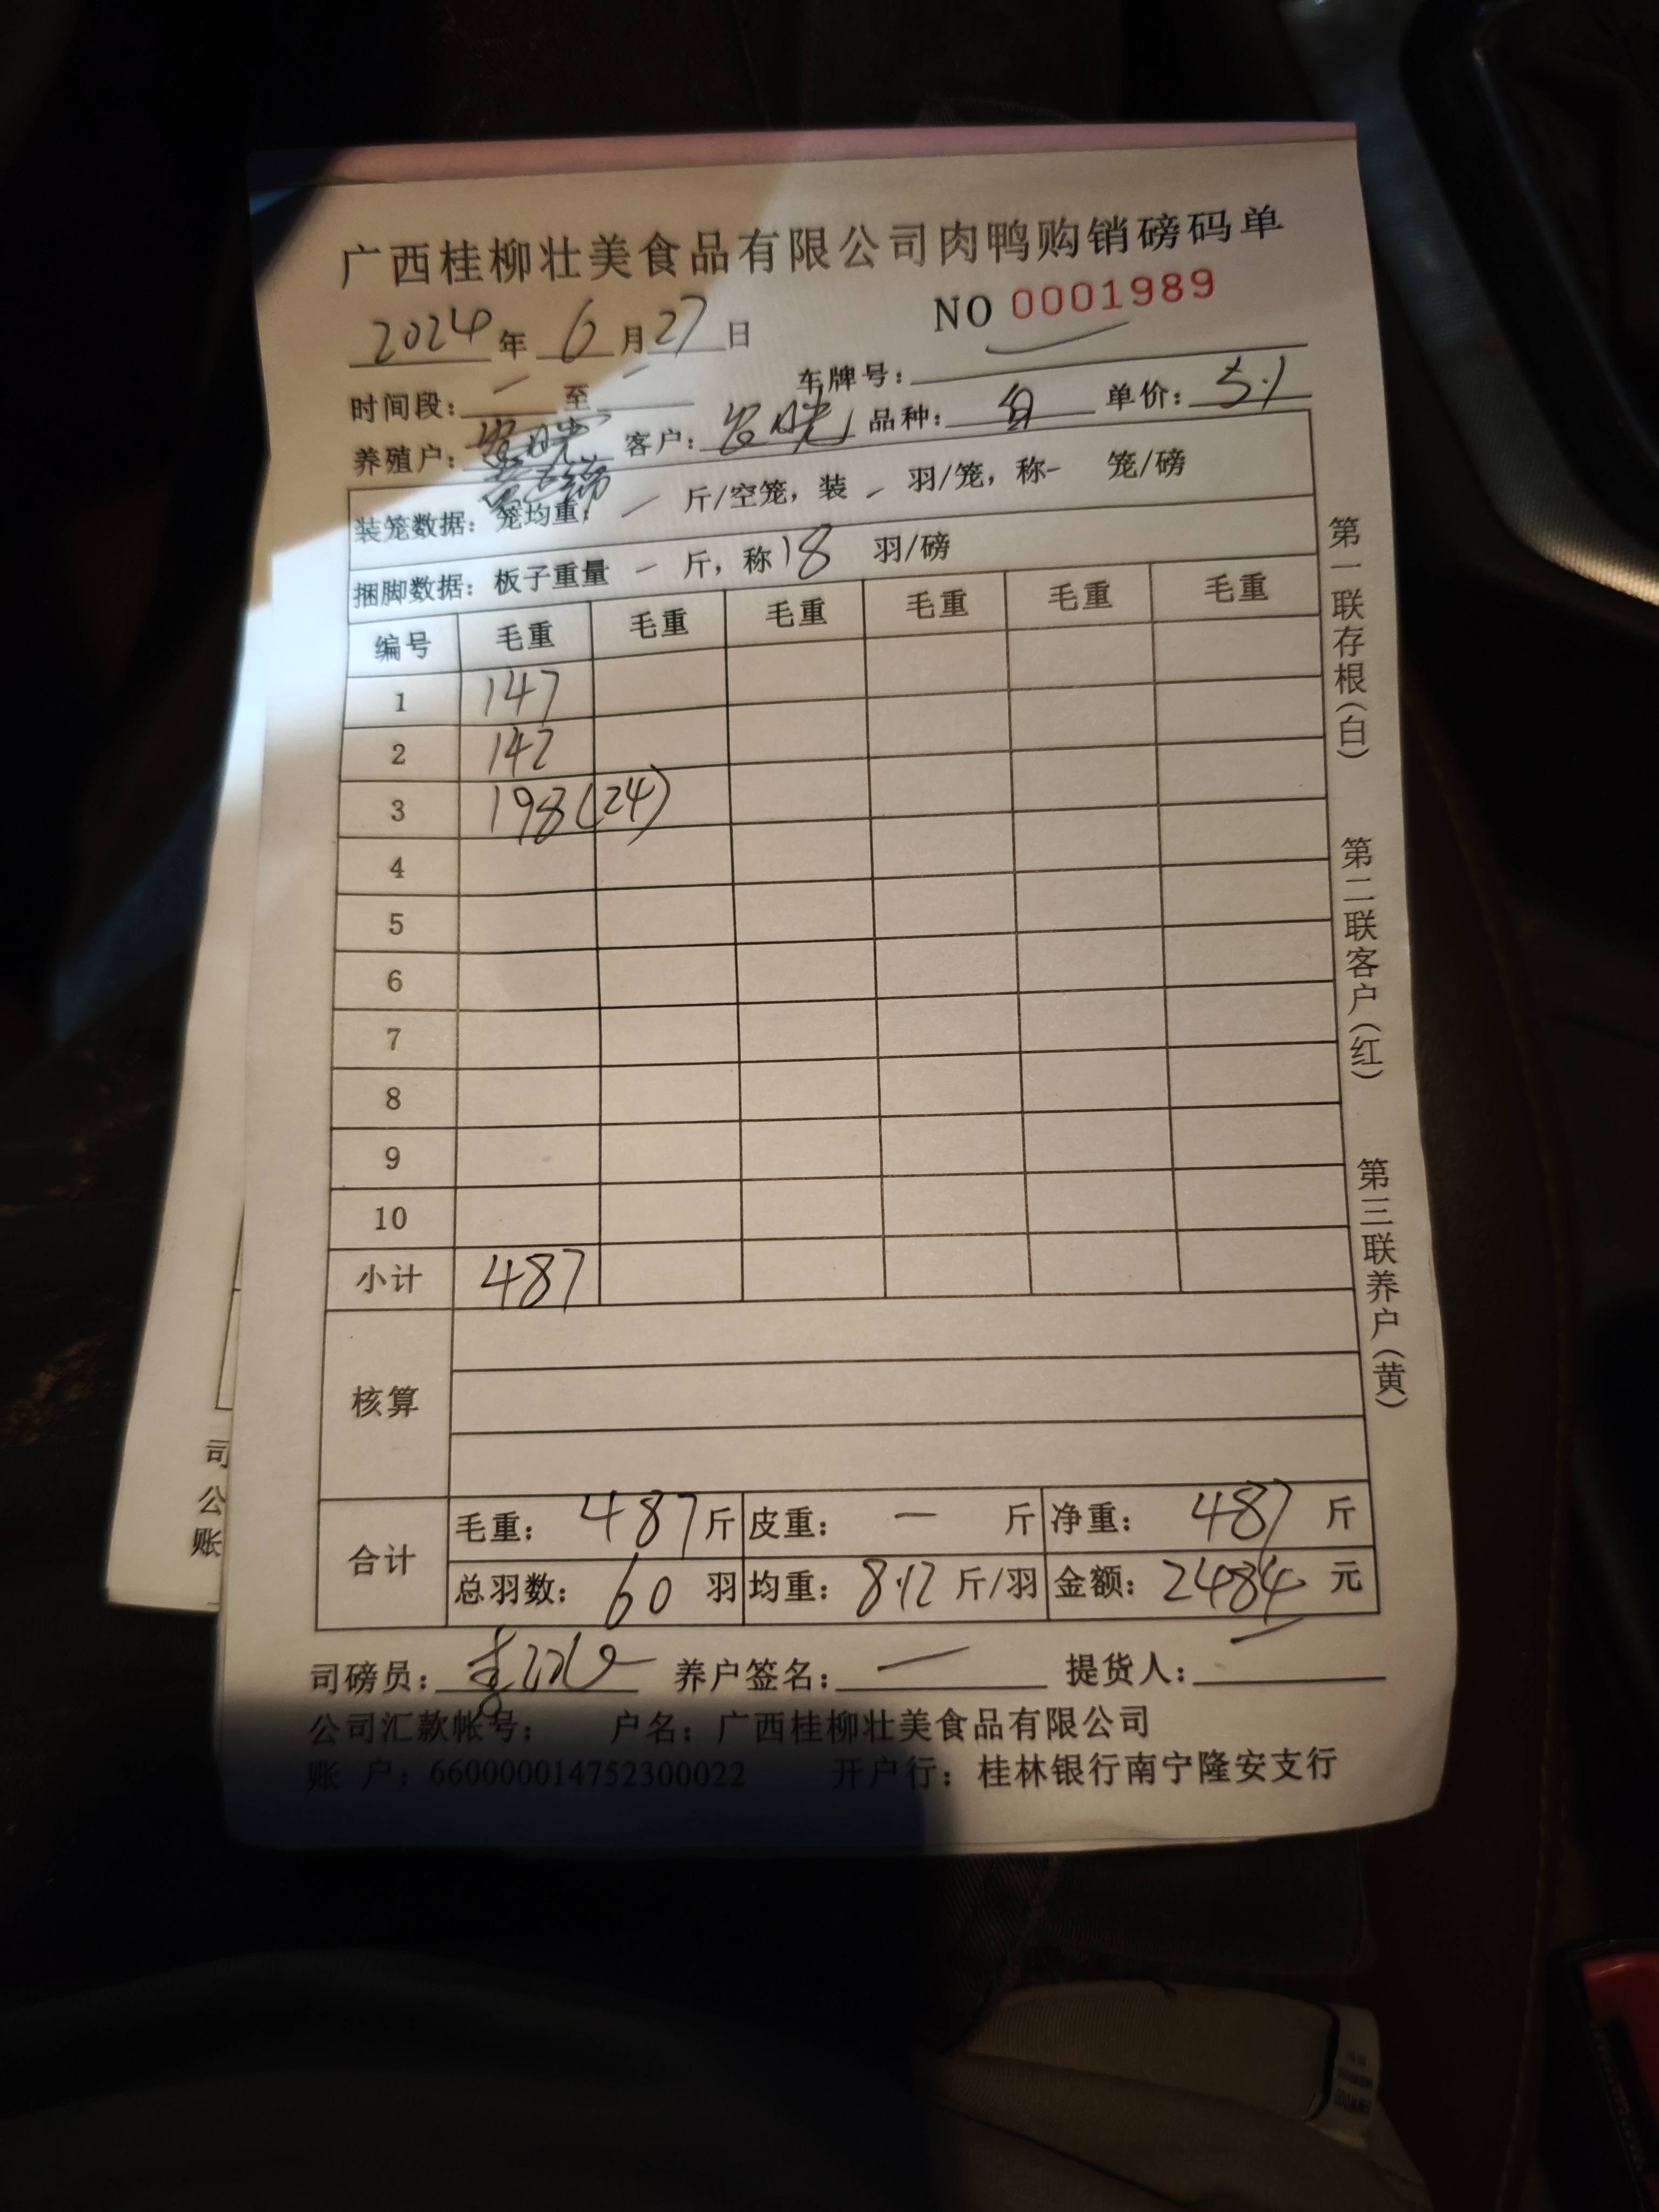 广西桂柳壮美食品有限公司肉鸭购销磅码单
2024年 6月27日 NO 0001989
时间段: — 至 — 车牌号:
养殖户: 客户: 品种: 单价: 5.1
装笼数据: 笼均重: — 斤/空笼, 装 - 羽/笼, 称- 笼/磅
捆脚数据: 板子重量 — 斤, 称18 羽/磅
编号 毛重 毛重 毛重 毛重 毛重 毛重
1 147
2 142
3 198(24)
4
5
6
7
8
9
10
小计 487
核算
合计 毛重: 487斤 皮重: — 斤 净重: 487 斤
总羽数: 60 羽 均重: 8.12 斤/羽 金额: 2484 元
司磅员: 养户签名: — 提货人:
公司汇款帐号: 户名: 广西桂柳壮美食品有限公司
账 户: 660000014752300022 开户行: 桂林银行南宁隆安支行
第一联存根(白)
第二联客户(红)
第三联养户(黄)
司
公
账